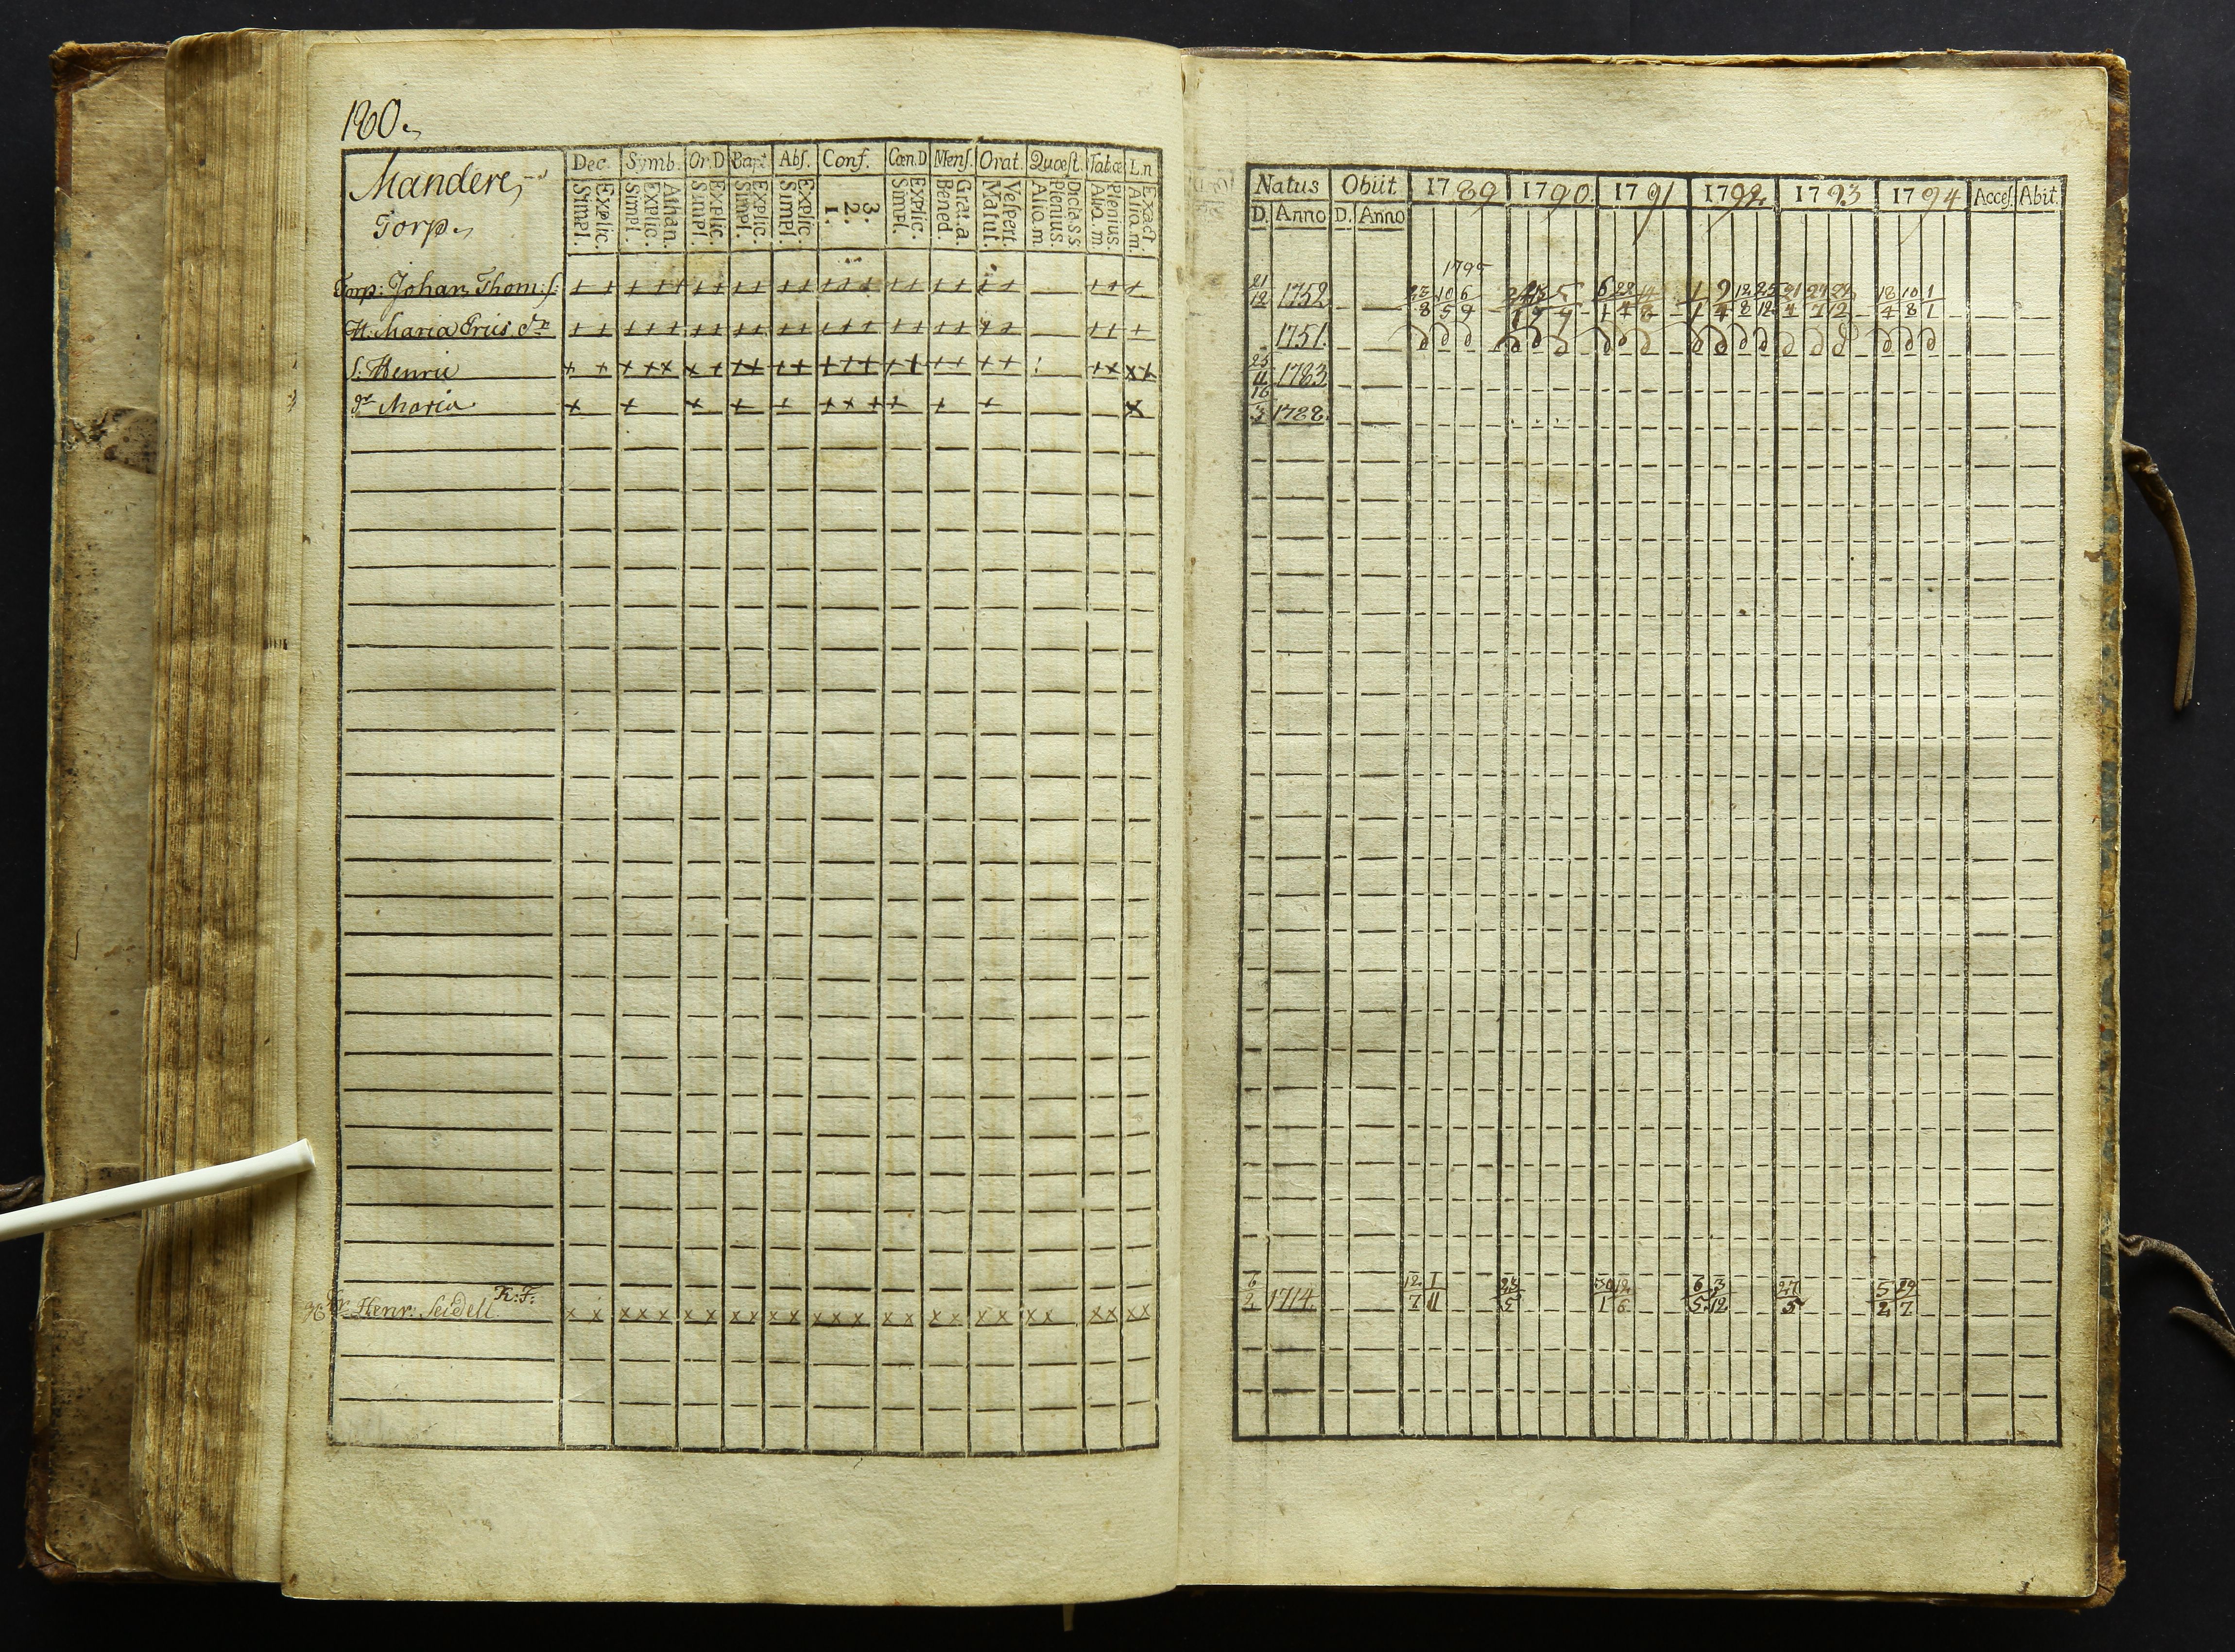 180.
Mandere,
Torp.
Dec. Symb. Or.D Bapt. Abſ. Conf. Cœn.D Menſ. Orat. Quœſt. Tabœ L.n
Simpl. Explic. Simpl. Explic. Athan. Simpl. Explic. Simpl. Explic. Simpl. Explic. 1. 2. 3. Simpl. Explic. Bened. Grat. a. Matut. Veſpert. Aliq. m. Plenius. Dicta ss Aliq. m. Plenius. Aliq. m. Exact.
Torp: Johan Thom: ſ + + + + + + + + + + + + + + + + + + + + + + +
H. Maria Eriis dr + + + + + + + + + + + + + + + + + + + + + + +
S: Henric + + + x x x + + + + + + + + + + + + + + : + x x +
dr Maria + + + + + + x + + + + x
Fr. Henr. Seidell K: F: x x x x x x x x x x x x x x x x x x x x x x x x x x
Natus Obiit 1789 1790. 1791 1792 1793 1794 Acceſ. Abiit.
D. Anno D. Anno
1795
21/12 1752 23/8 10/5 6/9 6/1 22/4 14/8 1/1 9/4 12/8 25/12 21/4 24/12 18/4 10/8 1/1
1751.
25/11 1783
16/3 1788.
6/2 1714. 12/7 1/11 23/5 30/1 12/6 6/5 3/12 27/5 5/2 29/7